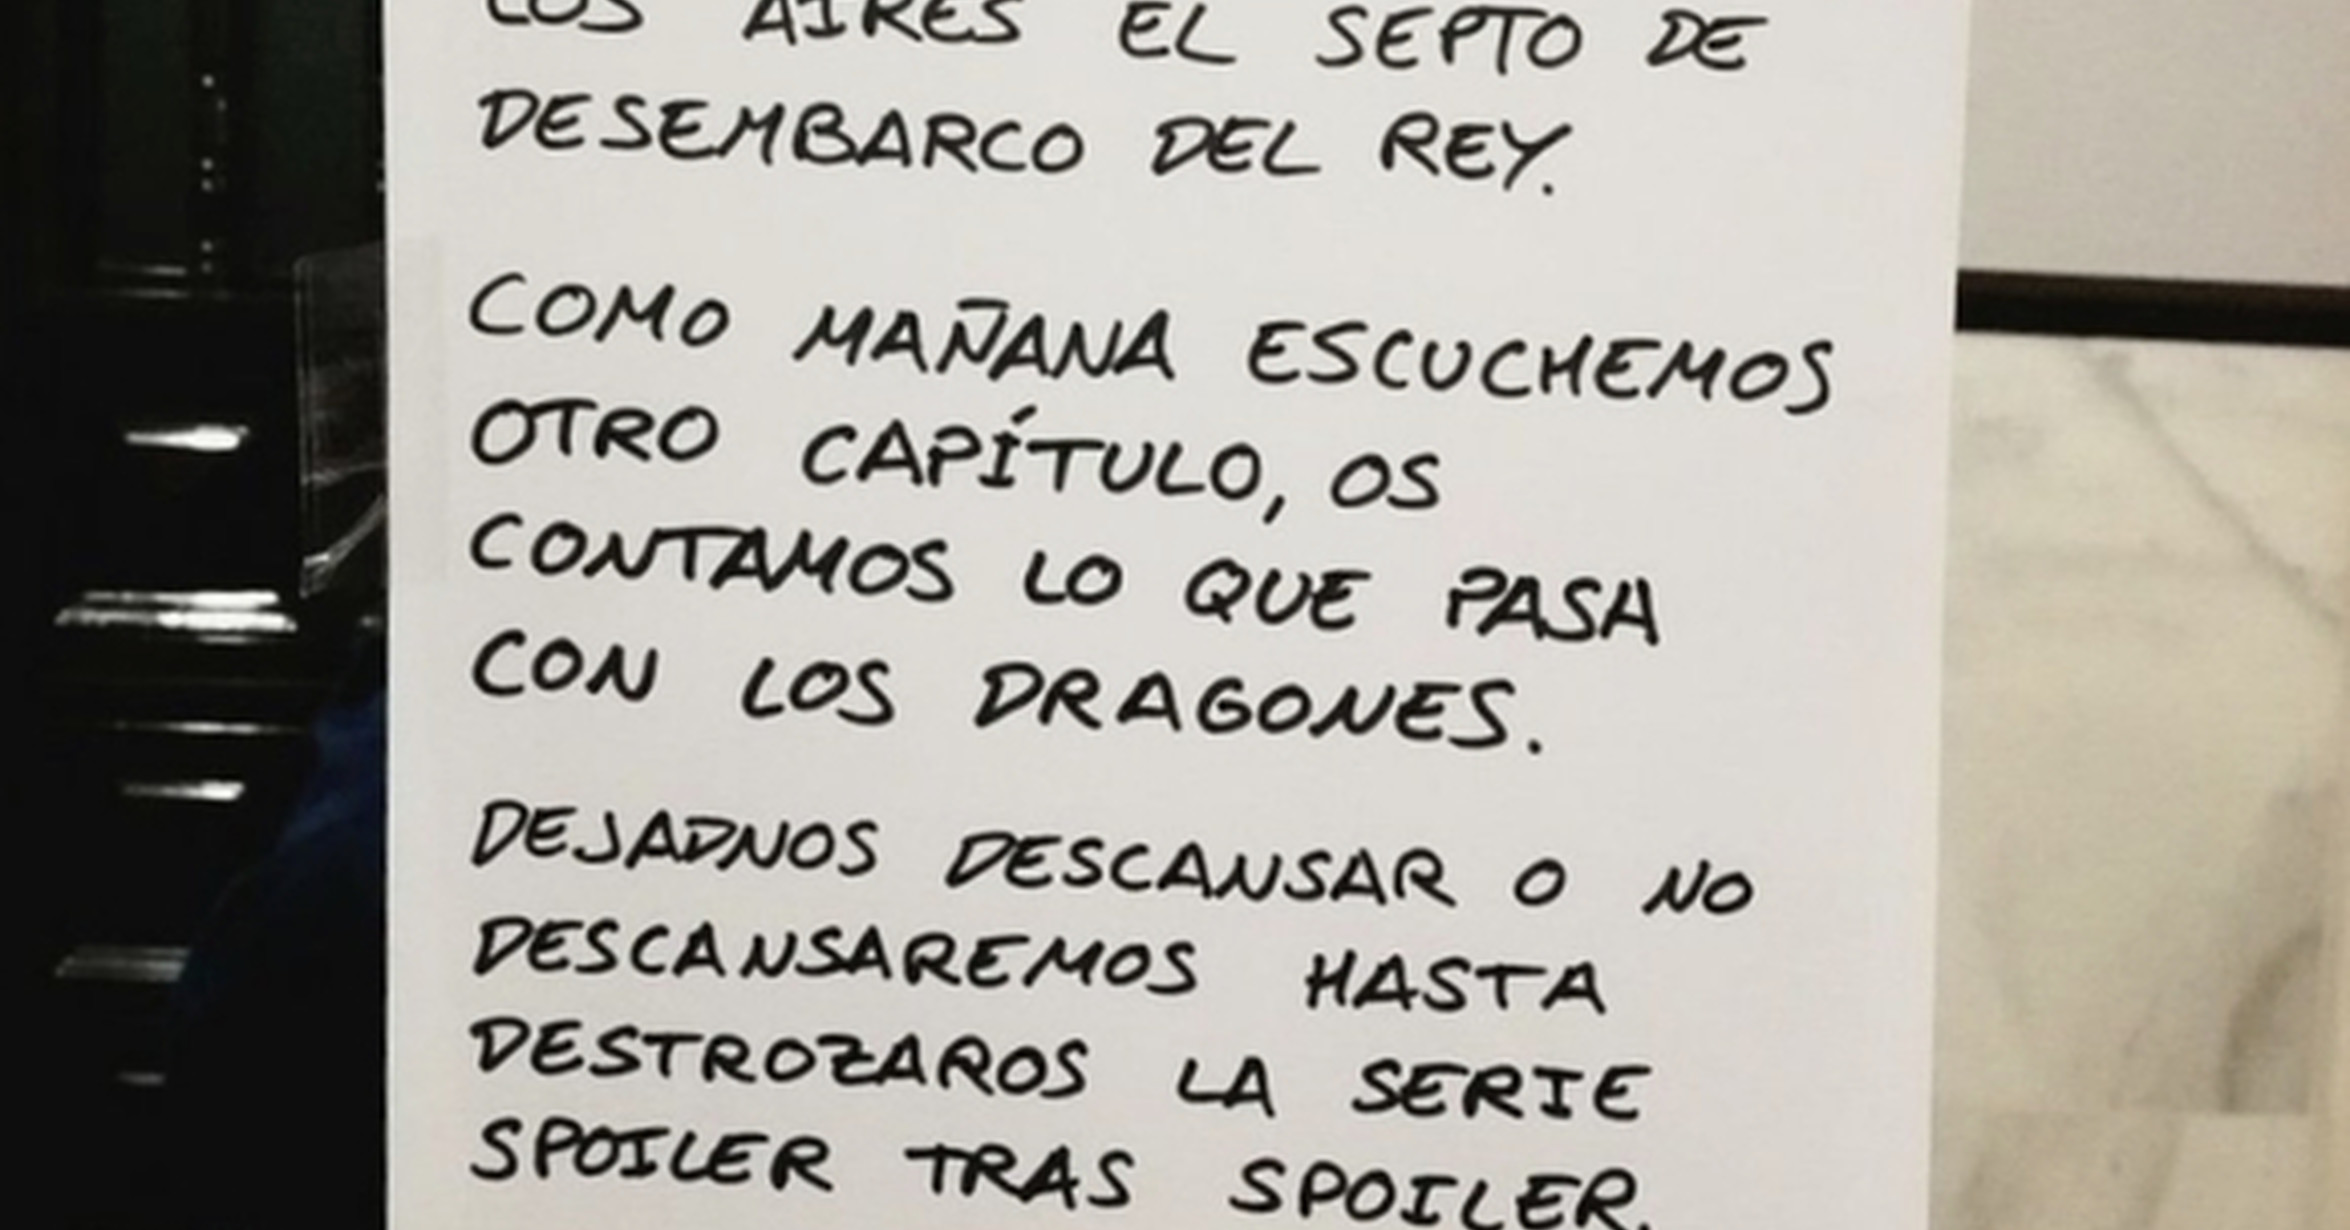 LOS AIRES EL SEPTO DE
DESEMBARCO DEL REY.
COMO MAÑANA ESCUCHEMOS
OTRO CAPÍTULO, OS
CONTAMOS LO QUE PASA
CON LOS DRAGONES.
DEJADNOS DESCANSAR O NO
DESCANSAREMOS HASTA
DESTROZAROS LA SERIE
SPOILER TRAS SPOILER.